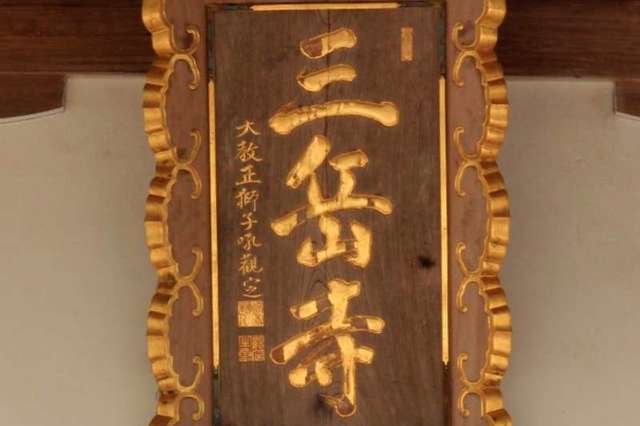 三岳寺
大教正獅子吼觀定